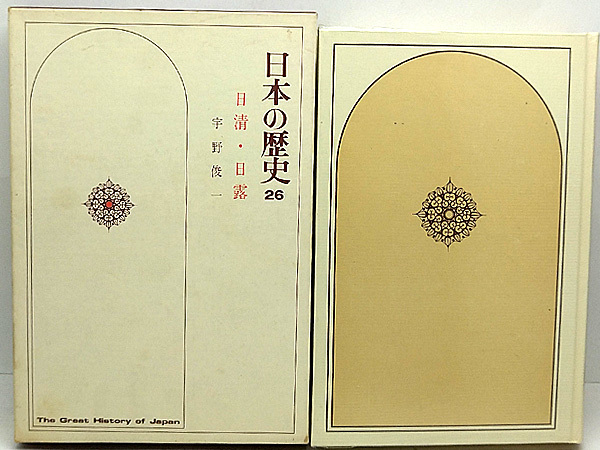 日本の歴史
26
日清・日露
宇野俊一
The Great History of Japan